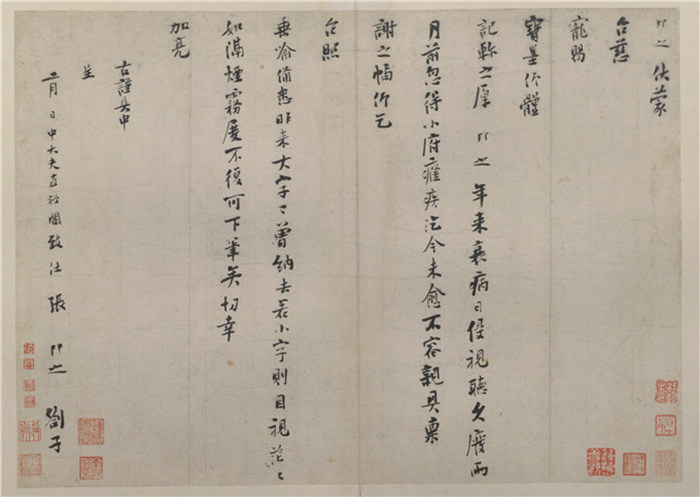 即之伏蒙
台慈
寵賜
寶墨仰體
記軫之厚即之年來衰病日侵視聽久廢兩
月前忽得小府癃疾迄今未愈不容親具稟
謝之幅仰乞
台照
垂喻備悉昨來大字〻曾納去若小字則目視茫〻
如滿煙霧度不復可下筆矣切幸
加亮
右謹具申
呈
二月日中大夫直祕閣致仕張即之劄子